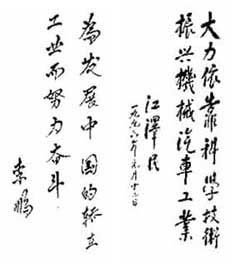 大力依靠科学技術
振兴機械汽車工業
江澤民
一九九六年元月十二日
為发展中国的轿车
工业而努力奋斗
李鵬